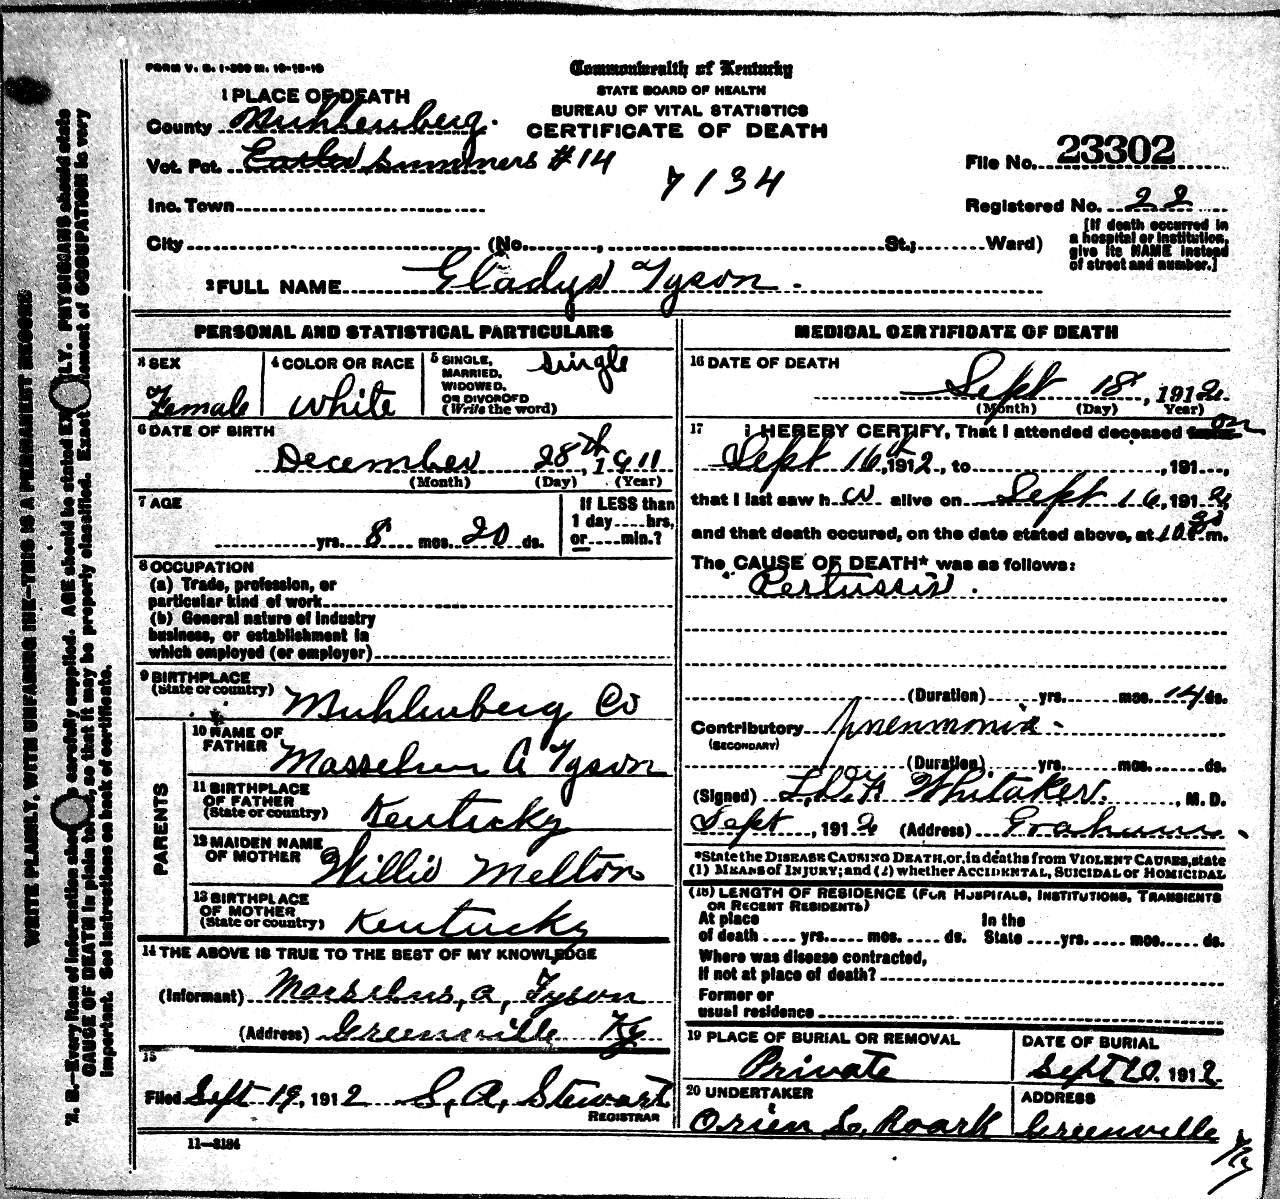 FORM V. S. 1-350 M. 10-15-10
Commonwealth of Kentucky
STATE BOARD OF HEALTH
BUREAU OF VITAL STATISTICS
CERTIFICATE OF DEATH
1 PLACE OF DEATH
County Muhlenberg.
Vot. Pct. Summers #14
7134
File No. 23302
Inc. Town
Registered No. 22
City (No. , St.; Ward)
[If death occurred in
a hospital or institution,
give its NAME instead
of street and number.]
2 FULL NAME Gladys Tyson.
PERSONAL AND STATISTICAL PARTICULARS
3 SEX
Female
4 COLOR OR RACE
White
5 SINGLE,
MARRIED,
WIDOWED,
OR DIVORCED
(Write the word)
Single
6 DATE OF BIRTH
December 28th, 1911
(Month) (Day) (Year)
7 AGE
yrs. 8 mos. 20 ds.
If LESS than
1 day hrs.
or min.?
8 OCCUPATION
(a) Trade, profession, or
particular kind of work
(b) General nature of industry
business, or establishment in
which employed (or employer)
9 BIRTHPLACE
(State or country)
Muhlenberg Co
PARENTS
10 NAME OF
FATHER
A Tyson
11 BIRTHPLACE
OF FATHER
(State or country)
Kentucky
12 MAIDEN NAME
OF MOTHER
Willie Melton
13 BIRTHPLACE
OF MOTHER
(State or country)
Kentucky
14 THE ABOVE IS TRUE TO THE BEST OF MY KNOWLEDGE
(Informant) Marselus, A, Tyson
(Address) Greenville Ky
15
Filed Sept 19, 1912 S. A. Stewart
REGISTRAR
11—3184
MEDICAL CERTIFICATE OF DEATH
16 DATE OF DEATH
Sept 18, 1912
(Month) (Day) Year)
17 I HEREBY CERTIFY, That I attended deceased from on
Sept 16th, 1912, to , 191 ,
that I last saw h er alive on Sept 16, 1912,
and that death occured, on the date stated above, at m.
The CAUSE OF DEATH* was as follows:
Pertussis.
(Duration) yrs. mos. 14 ds.
Contributory Pneumonia
(SECONDARY)
(Duration) yrs. mos. ds.
(Signed) Whitaker, M. D.
Sept , 1912 (Address) Graham.
*State the DISEASE CAUSING DEATH, or, in deaths from VIOLENT CAUSES, state
(1) MEANS of INJURY; and (2) whether ACCIDENTAL, SUICIDAL or HOMICIDAL
(18) LENGTH OF RESIDENCE (FOR HOSPITALS, INSTITUTIONS, TRANSIENTS
OR RECENT RESIDENTS)
At place In the
of death yrs. mos. ds. State yrs. mos. ds.
Where was disease contracted,
if not at place of death?
Former or
usual residence
19 PLACE OF BURIAL OR REMOVAL
Private
DATE OF BURIAL
Sept 20, 1912
20 UNDERTAKER
Orien L. Roark
ADDRESS
Greenville Ky
WRITE PLAINLY, WITH UNFADING INK—THIS IS A PERMANENT RECORD
N. B.—Every item of information should be carefully supplied. AGE should be stated EXACTLY. PHYSICIANS should state
CAUSE OF DEATH in plain terms, so that it may be properly classified. Exact statement of OCCUPATION is very
important. See instructions on back of certificate.